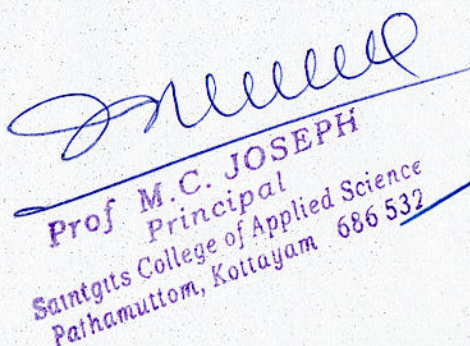 Prof M.C. JOSEPH
Principal
Saintgits College of Applied Science
Pathamuttom, Kottayam 686 532